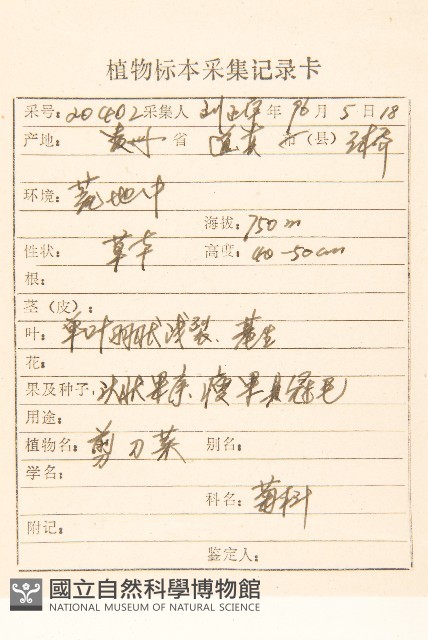 植物标本采集记录卡
采号:20402 采集人 刘正宇 年 96 月 5 日 18
产地: 贵州 省 道真 市(县)
环境: 荒地中
海拔: 750m
性状: 草本 高度: 40-50cm
根:
茎(皮):
叶: 单叶羽状浅裂、基生
花:
果及种子: 头状果序、瘦果具冠毛
用途:
植物名: 剪刀菜 别名:
学名:
科名: 菊科
附记:
鉴定人:
國立自然科學博物館
NATIONAL MUSEUM OF NATURAL SCIENCE